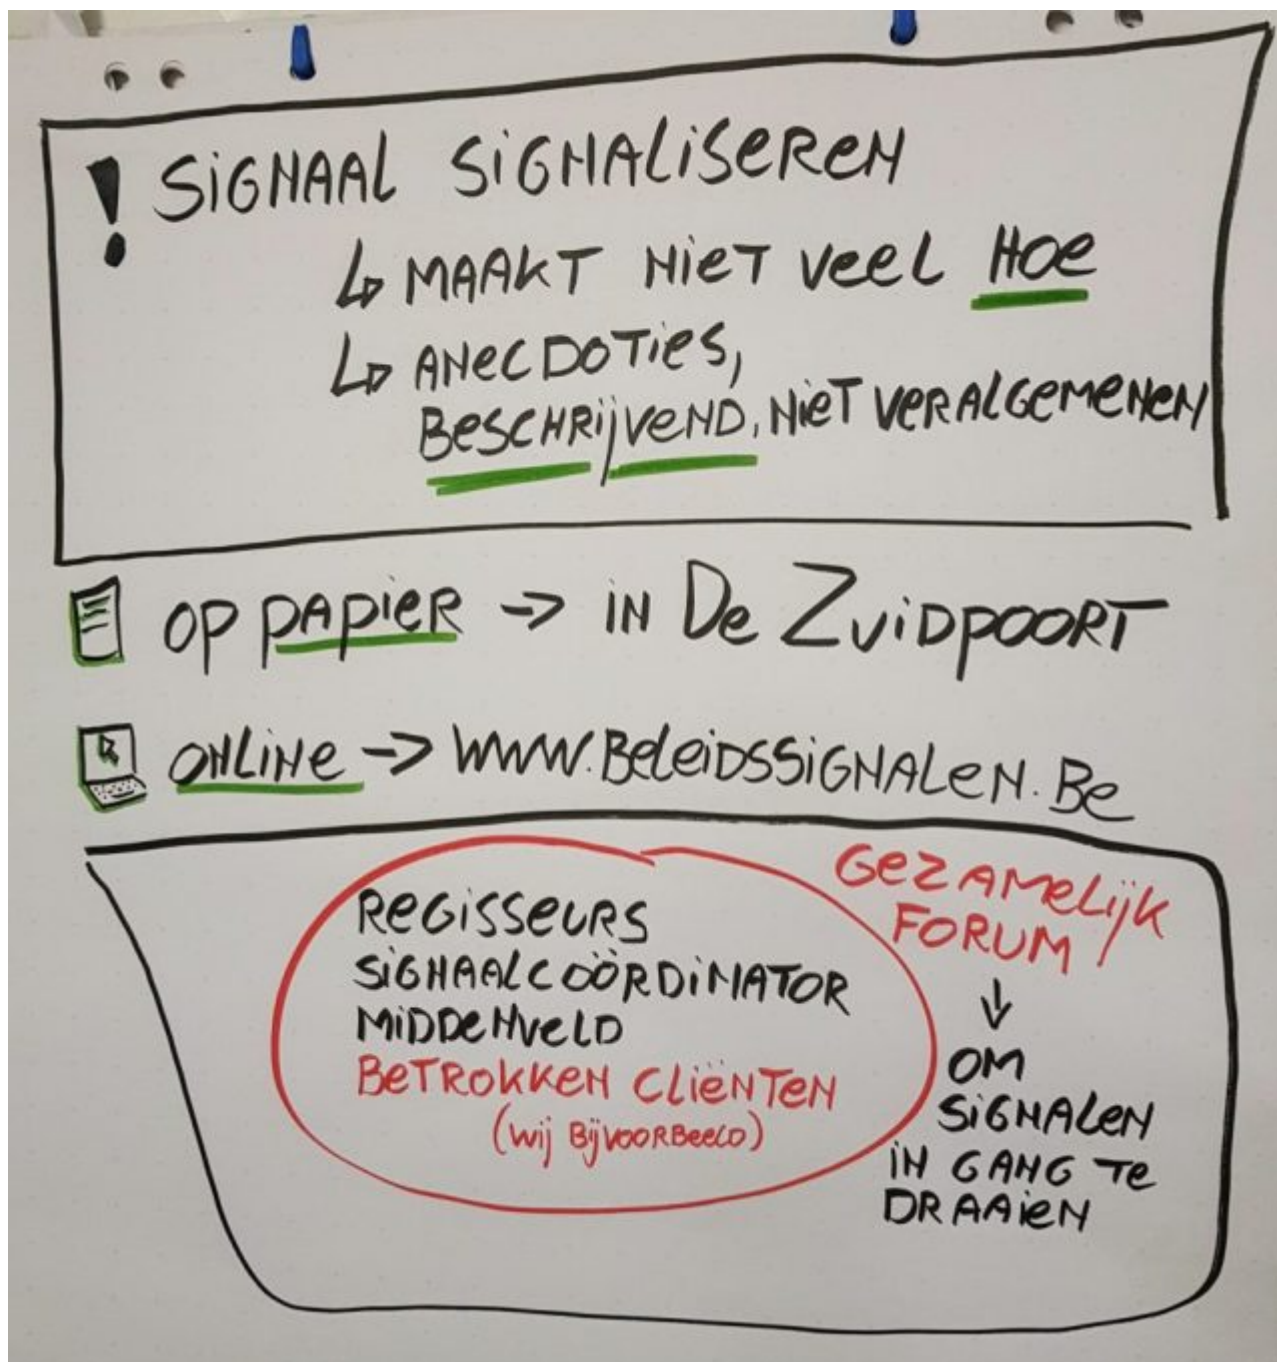 ! SIGNAAL SIGNALISEREN
↳ MAAKT NIET VEEL HOE
↳ ANECDOTIES,
BESCHRIJVEND, NIET VERALGEMENEN
OP PAPIER -> IN DE ZUIDPOORT
ONLINE -> WWW.BELEIDSSIGNALEN.BE
REGISSEURS
SIGNAALCOÖRDINATOR
MIDDENVELD
BETROKKEN CLIËNTEN
(WIJ BIJVOORBEELD)
GEZAMELIJK
FORUM
↓
OM
SIGNALEN
IN GANG TE
DRAAIEN